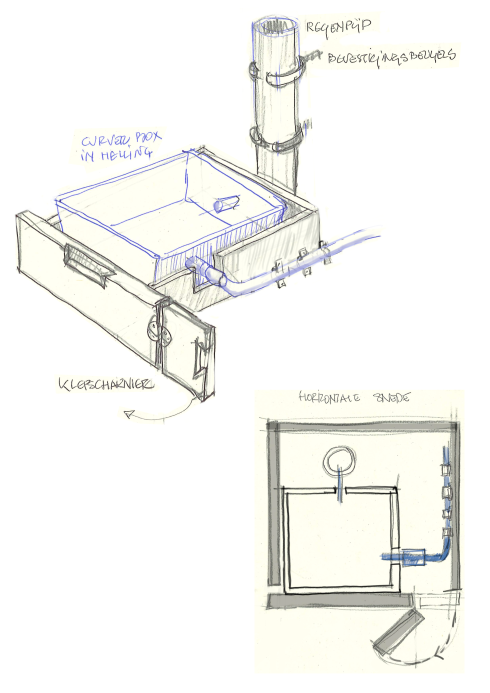 REGENPIJP
BEVESTIGINGSBEUGELS
CURVER BOX
IN HELLING
KLEPSCHARNIER
HORIZONTALE SNEDE